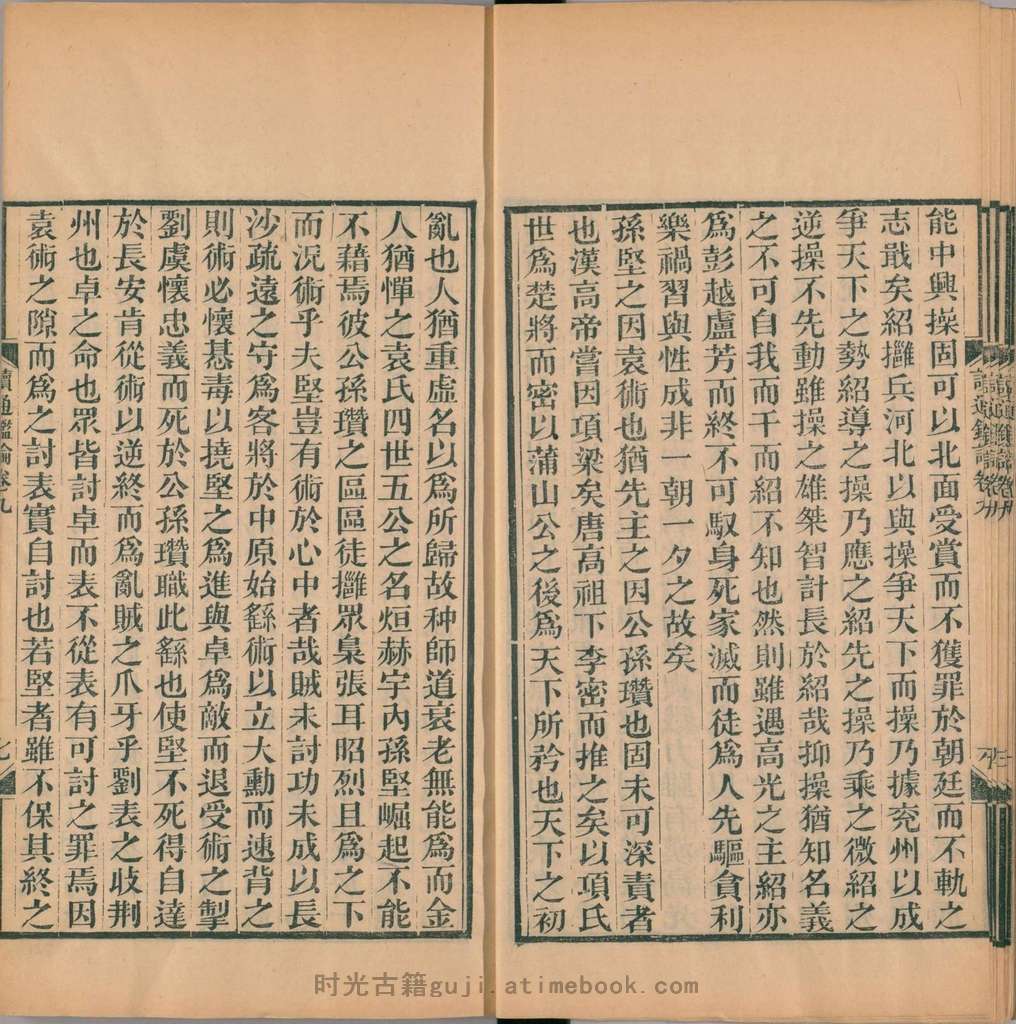 能中興操固可以北面受賞而不獲罪於朝廷而不軌之
志戢矣紹擁兵河北以與操爭天下而操乃據兖州以成
爭天下之勢紹導之操乃應之紹先之操乃乘之微紹之
逆操不先動雖操之雄桀智計長於紹哉抑操猶知名義
之不可自我而干而紹不知也然則雖遇高光之主紹亦
爲彭越盧芳而終不可馭身死家滅而徒爲人先驅貪利
樂禍習與性成非一朝一夕之故矣
孫堅之因袁術也猶先主之因公孫瓚也固未可深責者
也漢高帝嘗因項梁矣唐高祖下李密而推之矣以項氏
世爲楚將而密以蒲山公之後爲天下所矜也天下之初
亂也人猶重虛名以爲所歸故种師道衰老無能爲而金
人猶憚之袁氏四世五公之名烜赫宇內孫堅崛起不能
不藉焉彼公孫瓚之區區徒擁眾梟張耳昭烈且爲之下
而況術乎夫堅豈有術於心中者哉賊未討功未成以長
沙疏遠之守爲客將於中原始繇術以立大勳而速背之
則術必懷惎毒以撓堅之爲進與卓爲敵而退受術之掣
劉虞懷忠義而死於公孫瓚職此繇也使堅不死得自達
於長安肯從術以逆終而爲亂賊之爪牙乎劉表之收荆
州也卓之命也眾皆討卓而表不從表有可討之罪焉因
袁術之隙而爲之討表實自討也若堅者雖不保其終之
讀通鑑論卷九
七
时光古籍guji.atimebook.com